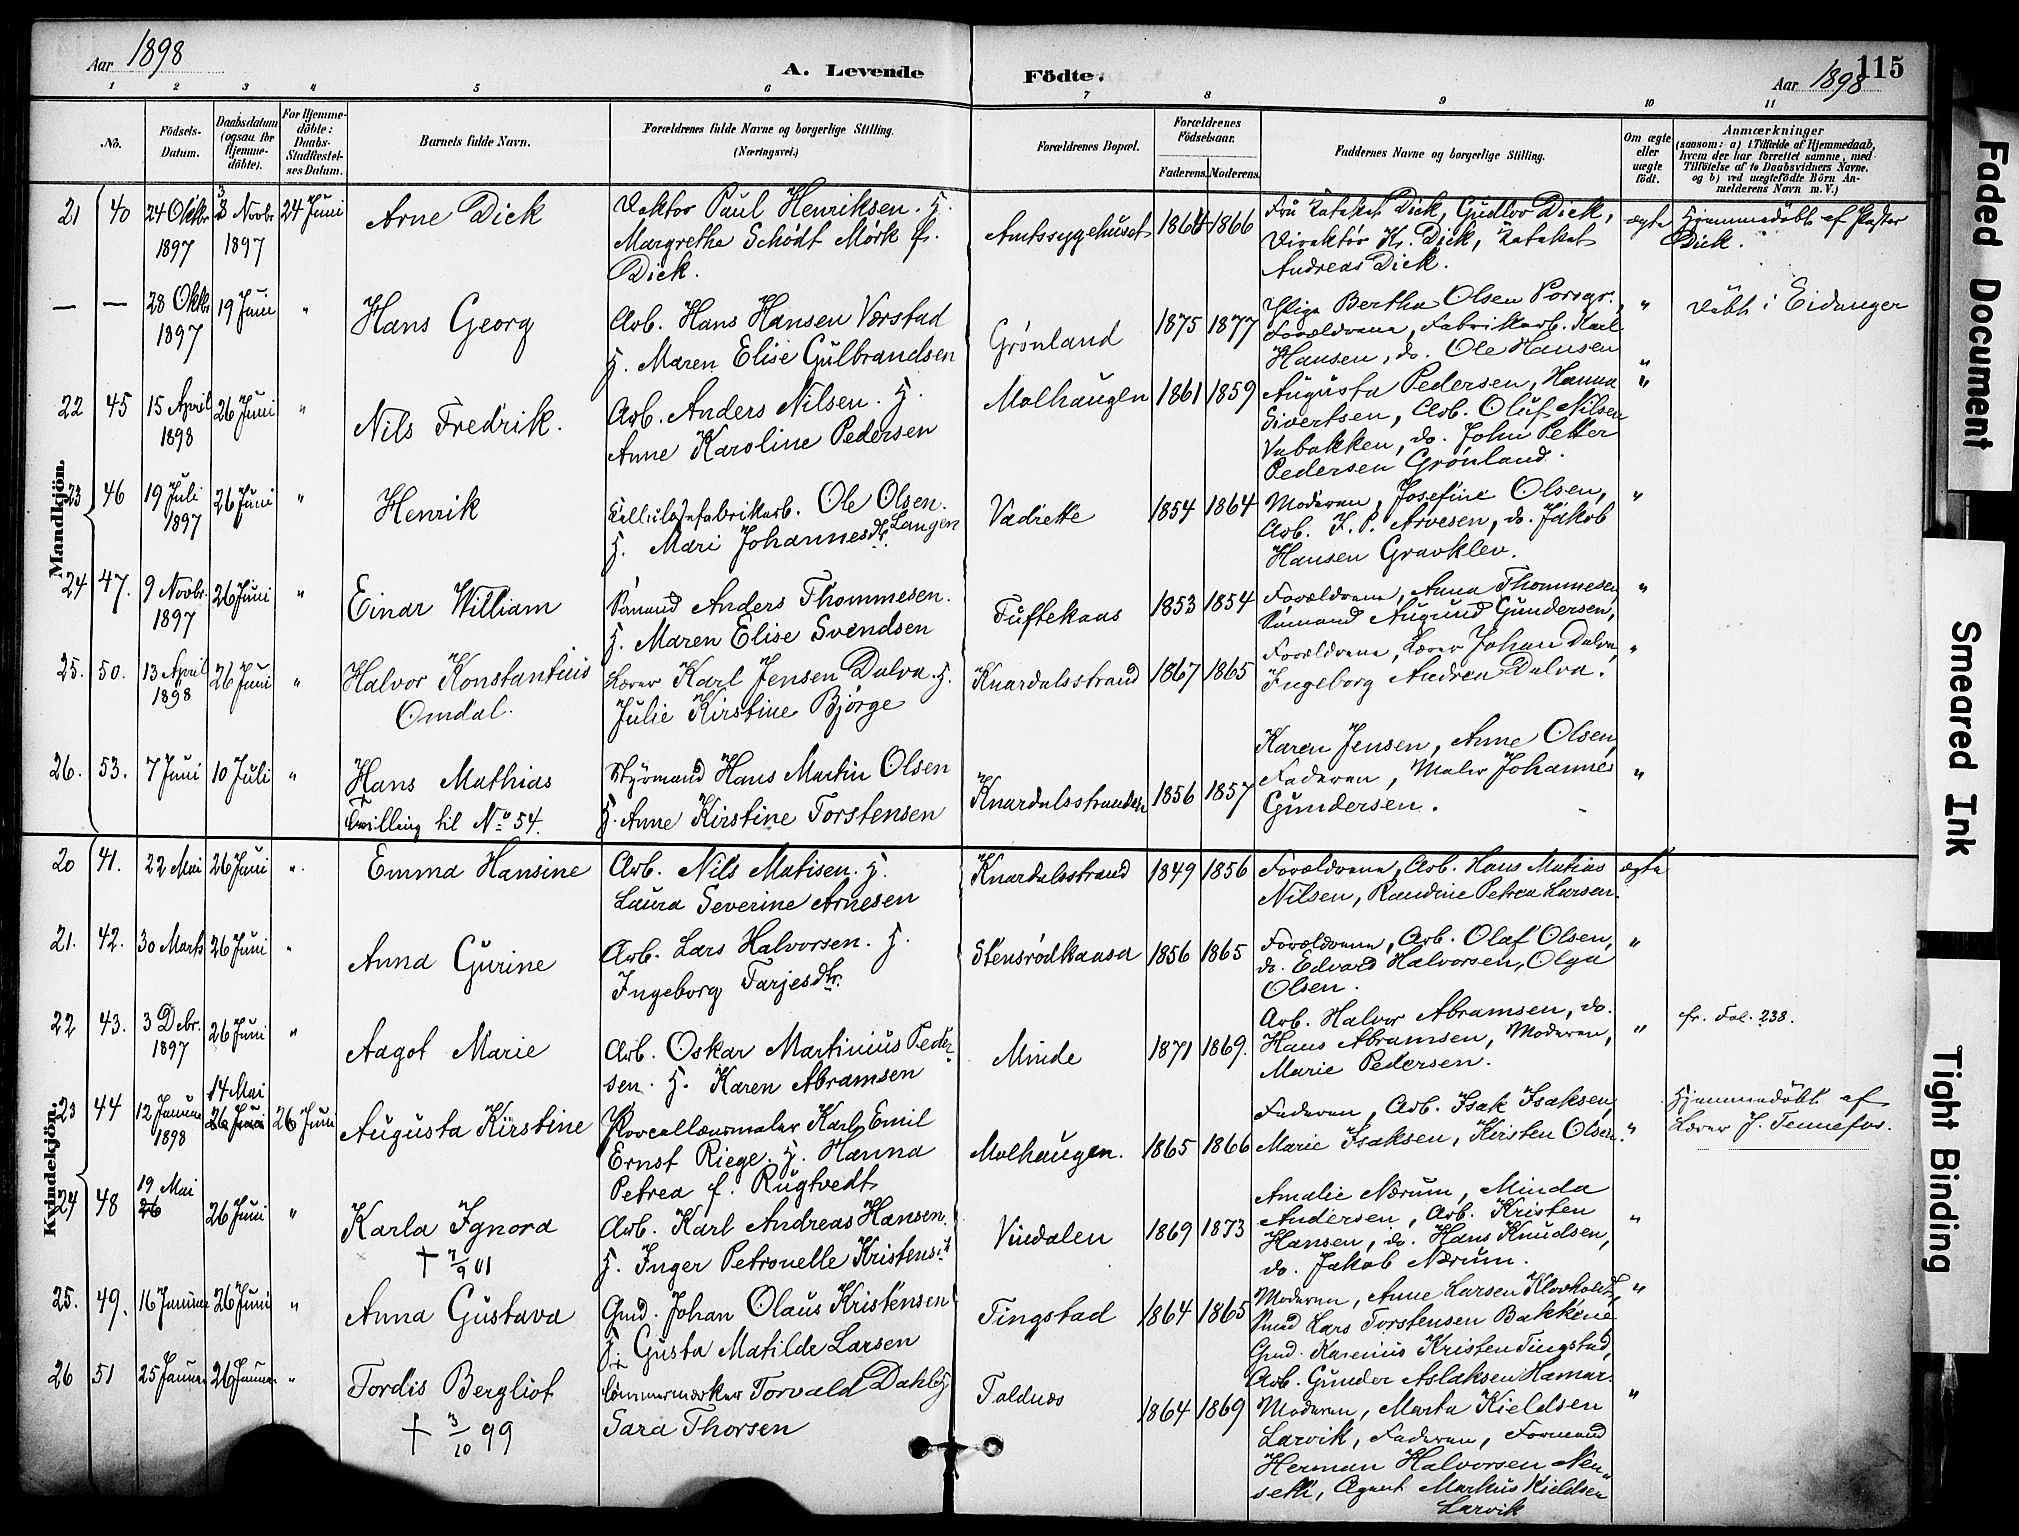 Aar 1898
A. Levende
Födte.
Aar 1898
115
1 2 3 4 5 6 7 8 9 10 11
No.
Födsels-Datum.
Daabsdatum (ogsaa for Hjemmedöbte).
For Hjemmedöbte: Daabs-Stadfæstelses Datum.
Barnets fulde Navn.
Forældrenes fulde Navne og borgerlige Stilling. (Næringsvei.)
Forældrenes Bopæl.
Forældrenes Födselsaar.
Faderens. Moderens.
Faddernes Navne og borgerlige Stilling.
Om ægte eller uægte födt.
Anmærkninger
(saasom: a) i Tilfælde af Hjemmedaab, hvem der har forrettet samme, med Tilföielse af to Daabsvidners Navne. og b) ved uægtefödte Börn Anmelderens Navn m. V.)
Mandkjön.
21 40 24 Oktbr 1897 3 Novbr 1897 24 Juni Arne Dick
Doktor Paul Henriksen. H.
Margrethe Schødt Mørk f.
Dick.
Amtssygehuset 1864 1866
Fru Kateket Dick, Gudlov Dick,
Direktør Kr. Dick, Kateket
Andreas Dick.
ægte Hjemmedøbt af Pastor
Dick.
— — 28 Oktbr 1897 19 Juni " Hans Georg
Arb. Hans Hansen Vorstad
H. Maren Elise Gulbrandsen
Grønland 1875 1877
Pige Bertha Olsen Porsgr.,
Forældrene, Fabrikarb. Karl
Hansen, do. Ole Hansen
" Døbt i Eidanger
22 45 15 April 1898 26 Juni " Nils Fredrik.
Arb. Anders Nilsen. H.
Anne Karoline Pedersen
Molhaugen 1861 1859
Augusta Pedersen, Hanna
Sivertsen, Arb. Oluf Nilsen
Vabakken, do. John Petter
Pedersen Grønland.
"
23 46 19 Juli 1897 26 Juni " Henrik
Cellulosefabrikarb. Ole Olsen.
H. Mari Johannesdtr. Langen
Vadrette 1854 1864
Moderen, Josefine Olsen,
Arb. J. P. Arvesen, do. Jakob
Hansen Gravklev.
"
24 47. 9 Novbr. 1897 26 Juni " Einar William
Sømand Anders Thommesen.
H. Maren Elise Svendsen
Tuftekaas 1853 1854
Forældrene, Anna Thommesen,
Sømand August Gundersen,
"
25. 50. 13 April 1898 26 Juni " Halvor Konstantius
Omdal.
Lærer Karl Jensen Dalva. H.
Julie Kirstine Bjørge
Knardalsstrand 1867 1865
Forældrene, Lærer Johan Dalva,
Ingeborg Andrea Dalva.
"
26. 53. 7 Juni 10 Juli " Hans Mathias
Tvilling til No 54.
Styrmand Hans Martin Olsen
H. Anne Kirstine Torstensen
Knardalsstranden 1856 1857
Karen Jensen, Anne Olsen,
Faderen, Maler Johannes
Gundersen.
"
Kvindekjön.
20 41. 22 Mai 26 Juni " Emma Hansine
Arb. Nils Matisen. H.
Laura Severine Arnesen
Knardalsstrand 1849 1856
Forældrene, Arb. Hans Matias
Nilsen, Randine Petrea Larsen.
ægte
21. 42. 30 Marts 26 Juni " Anna Gurine
Arb. Lars Halvorsen. H.
Ingeborg Tarjesdtr.
Stensrødkaasa 1856 1865
Forældrene, Arb. Olaf Olsen,
do. Edvard Halvorsen, Olga
Olsen.
"
22 43. 3 Debr. 1897 26 Juni " Aagot Marie
Arb. Oskar Martinius Peder-
sen. H. Karen Abramsen
Minde 1871 1869.
Arb. Halvor Abramsen, do.
Hans Abramsen, Moderen,
Marie Pedersen.
" fr. Fol. 238.
23 44 12 Januar 1898 14 Mai 26 Juni 26 Juni Augusta Kirstine
Porcellænsmaler Karl Emil
Ernst Riege. H. Hanna
Petrea f. Rugtvedt
Molhaugen. 1865 1866
Faderen, Arb. Isak Isaksen,
Marie Isaksen, Kirsten Olsen.
" Hjemmedøbt af
Lærer J. Tennefos.
24 48 19 Mai 26 26 Juni " Karla Ignora
† 7/9 01
Arb. Karl Andreas Hansen.
H. Inger Petronelle Kristensdt
Vindalen 1869 1873
Amalie Nærum, Minda
Andersen, Arb. Kristen
Hansen, do. Hans Knudsen,
do. Jakob Nærum.
"
25. 49. 16 Januar 26 Juni " Anna Gustava
Gmd. Johan Olaus Kristensen
H. Gusta Matilde Larsen
Tingstad 1864 1865
Moderen, Anne Larsen Klovholt,
Lars Torstensen Bakkene
Gmd. Karenius Kristen Tingstad,
Arb. Gunder Aslaksen Hamar.
"
26 51 25 Januar 26 Januar " Tordis Bergliot
† 3/10 99
Tømmermærker Torvald Dahl H.
Sara Thorsen
Faldnæs 1864 1869
Moderen, Marta Kieldsen
Larvik, Faderen, Formand
Herman Halvorsen Nen-
seth, Agent Markus Kieldsen
Larvik
"
Faded Document
Smeared Ink
Tight Binding